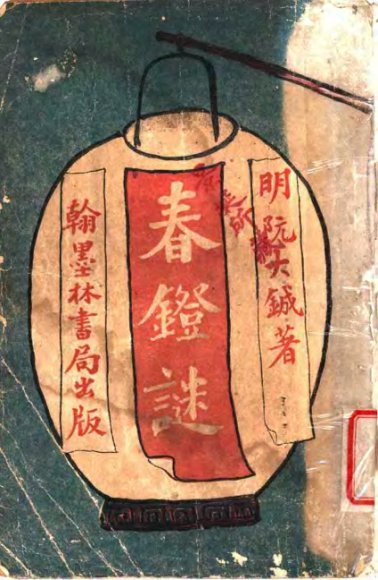 明 阮大鋮著
春鐙謎
翰墨林書局出版